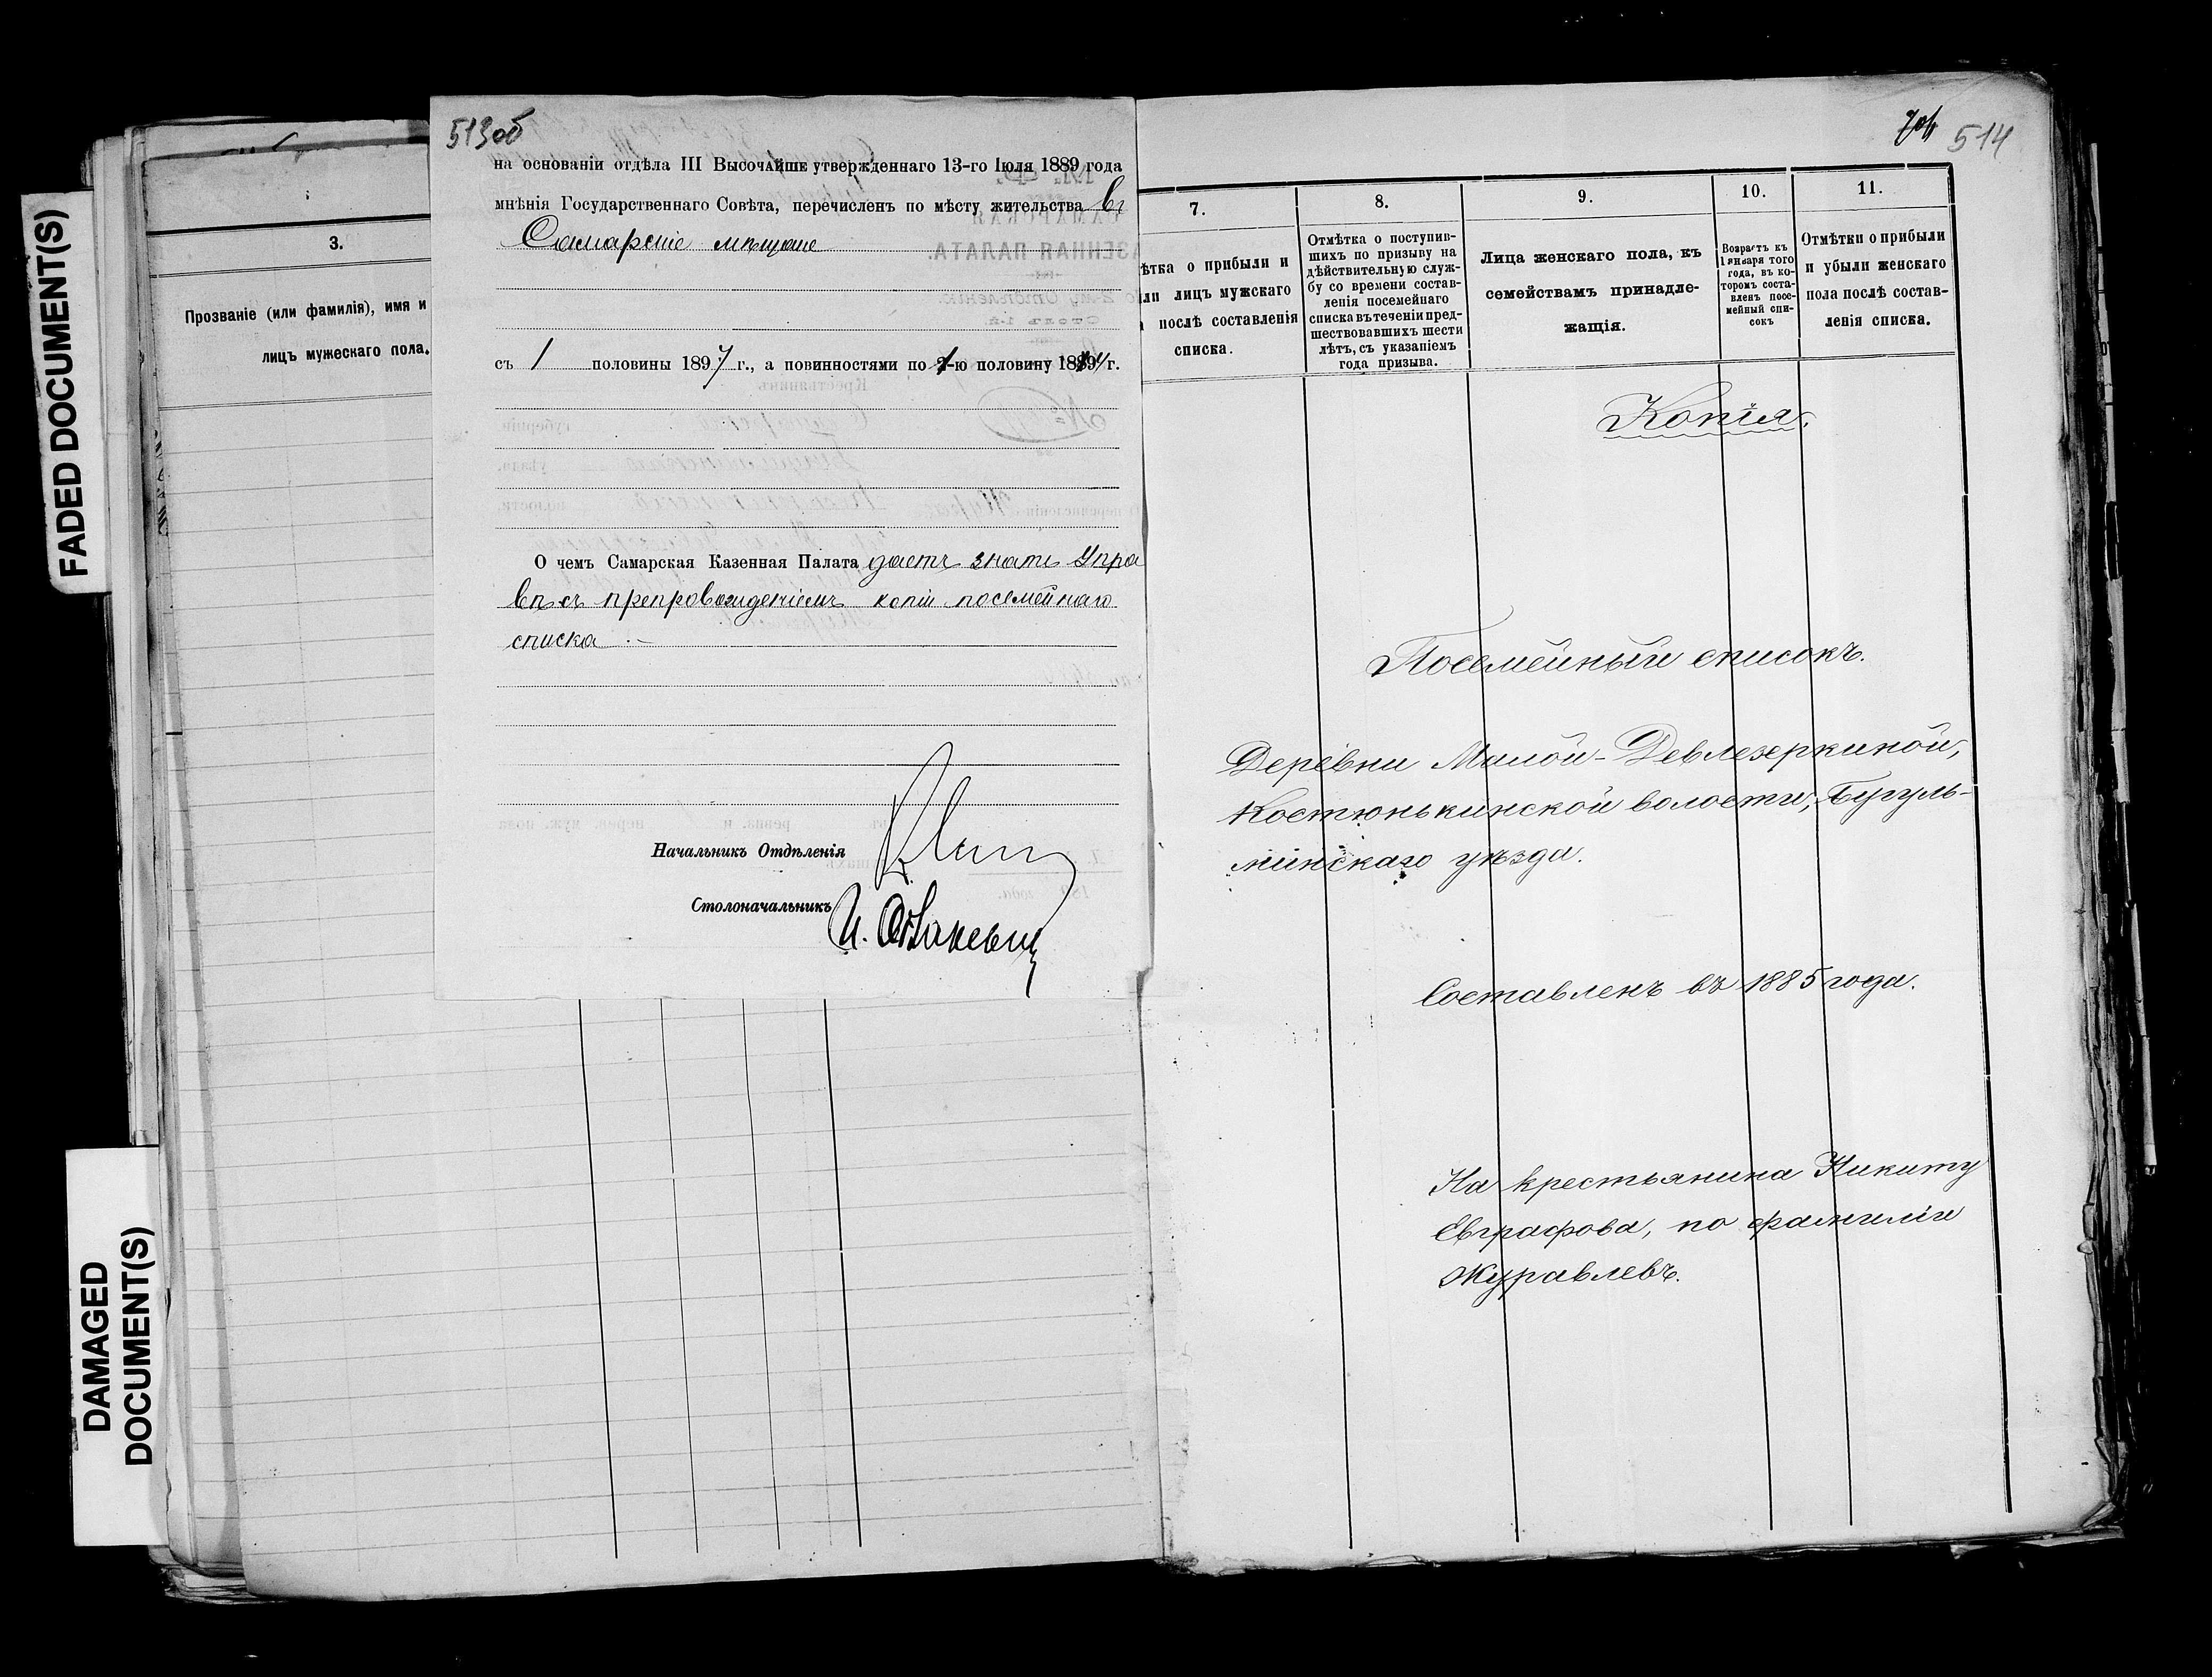 FADED DOCUMENT(S)
DAMAGED
DOCUMENT(S)
3.
Прозваніе (или фамилія), имя и
лицъ мужескаго пола.
513об
на основаніи отдѣла III Высочайше утвержденнаго 13-го Іюля 1889 года
мнѣнія Государственнаго Совѣта, перечисленъ по мѣсту жительства въ
Самарскіе мѣщане
съ 1 половины 1897 г., а повинностями по 1-ю половину г.
О чемъ Самарская Казенная Палата даетъ знать Упра
вѣ съ препровожденіемъ копіи посемейнаго
списка. –
Начальникъ Отдѣленія
Столоначальникъ
514
7.
ѣтка о прибыли и
ли лицъ мужскаго
послѣ составленія
списка.
8.
Отмѣтка о поступив-
шихъ по призыву на
дѣйствительную служ-
бу со времени состав-
ленія посемейнаго
списка въ теченіи пред-
шествовавшихъ шести
лѣтъ, съ указаніемъ
года призыва.
9.
Лица женскаго пола, къ
семействамъ принадле-
жащія.
10.
Возрастъ къ
1 января того
года, въ ко-
торомъ соста-
вленъ посе-
мейный спи-
сокъ
11.
Отмѣтки о прибыли
и убыли женскаго
пола послѣ состав-
ленія списка.
Копія.
Посемейный списокъ.
Деревни Малой-Девлезеркиной,
Костюнькинской волости, Бугуль-
минскаго уѣзда.
Составленъ въ 1885 года.
На крестьянина Никиту
Евграфова, по фамиліи
Журавлевъ.